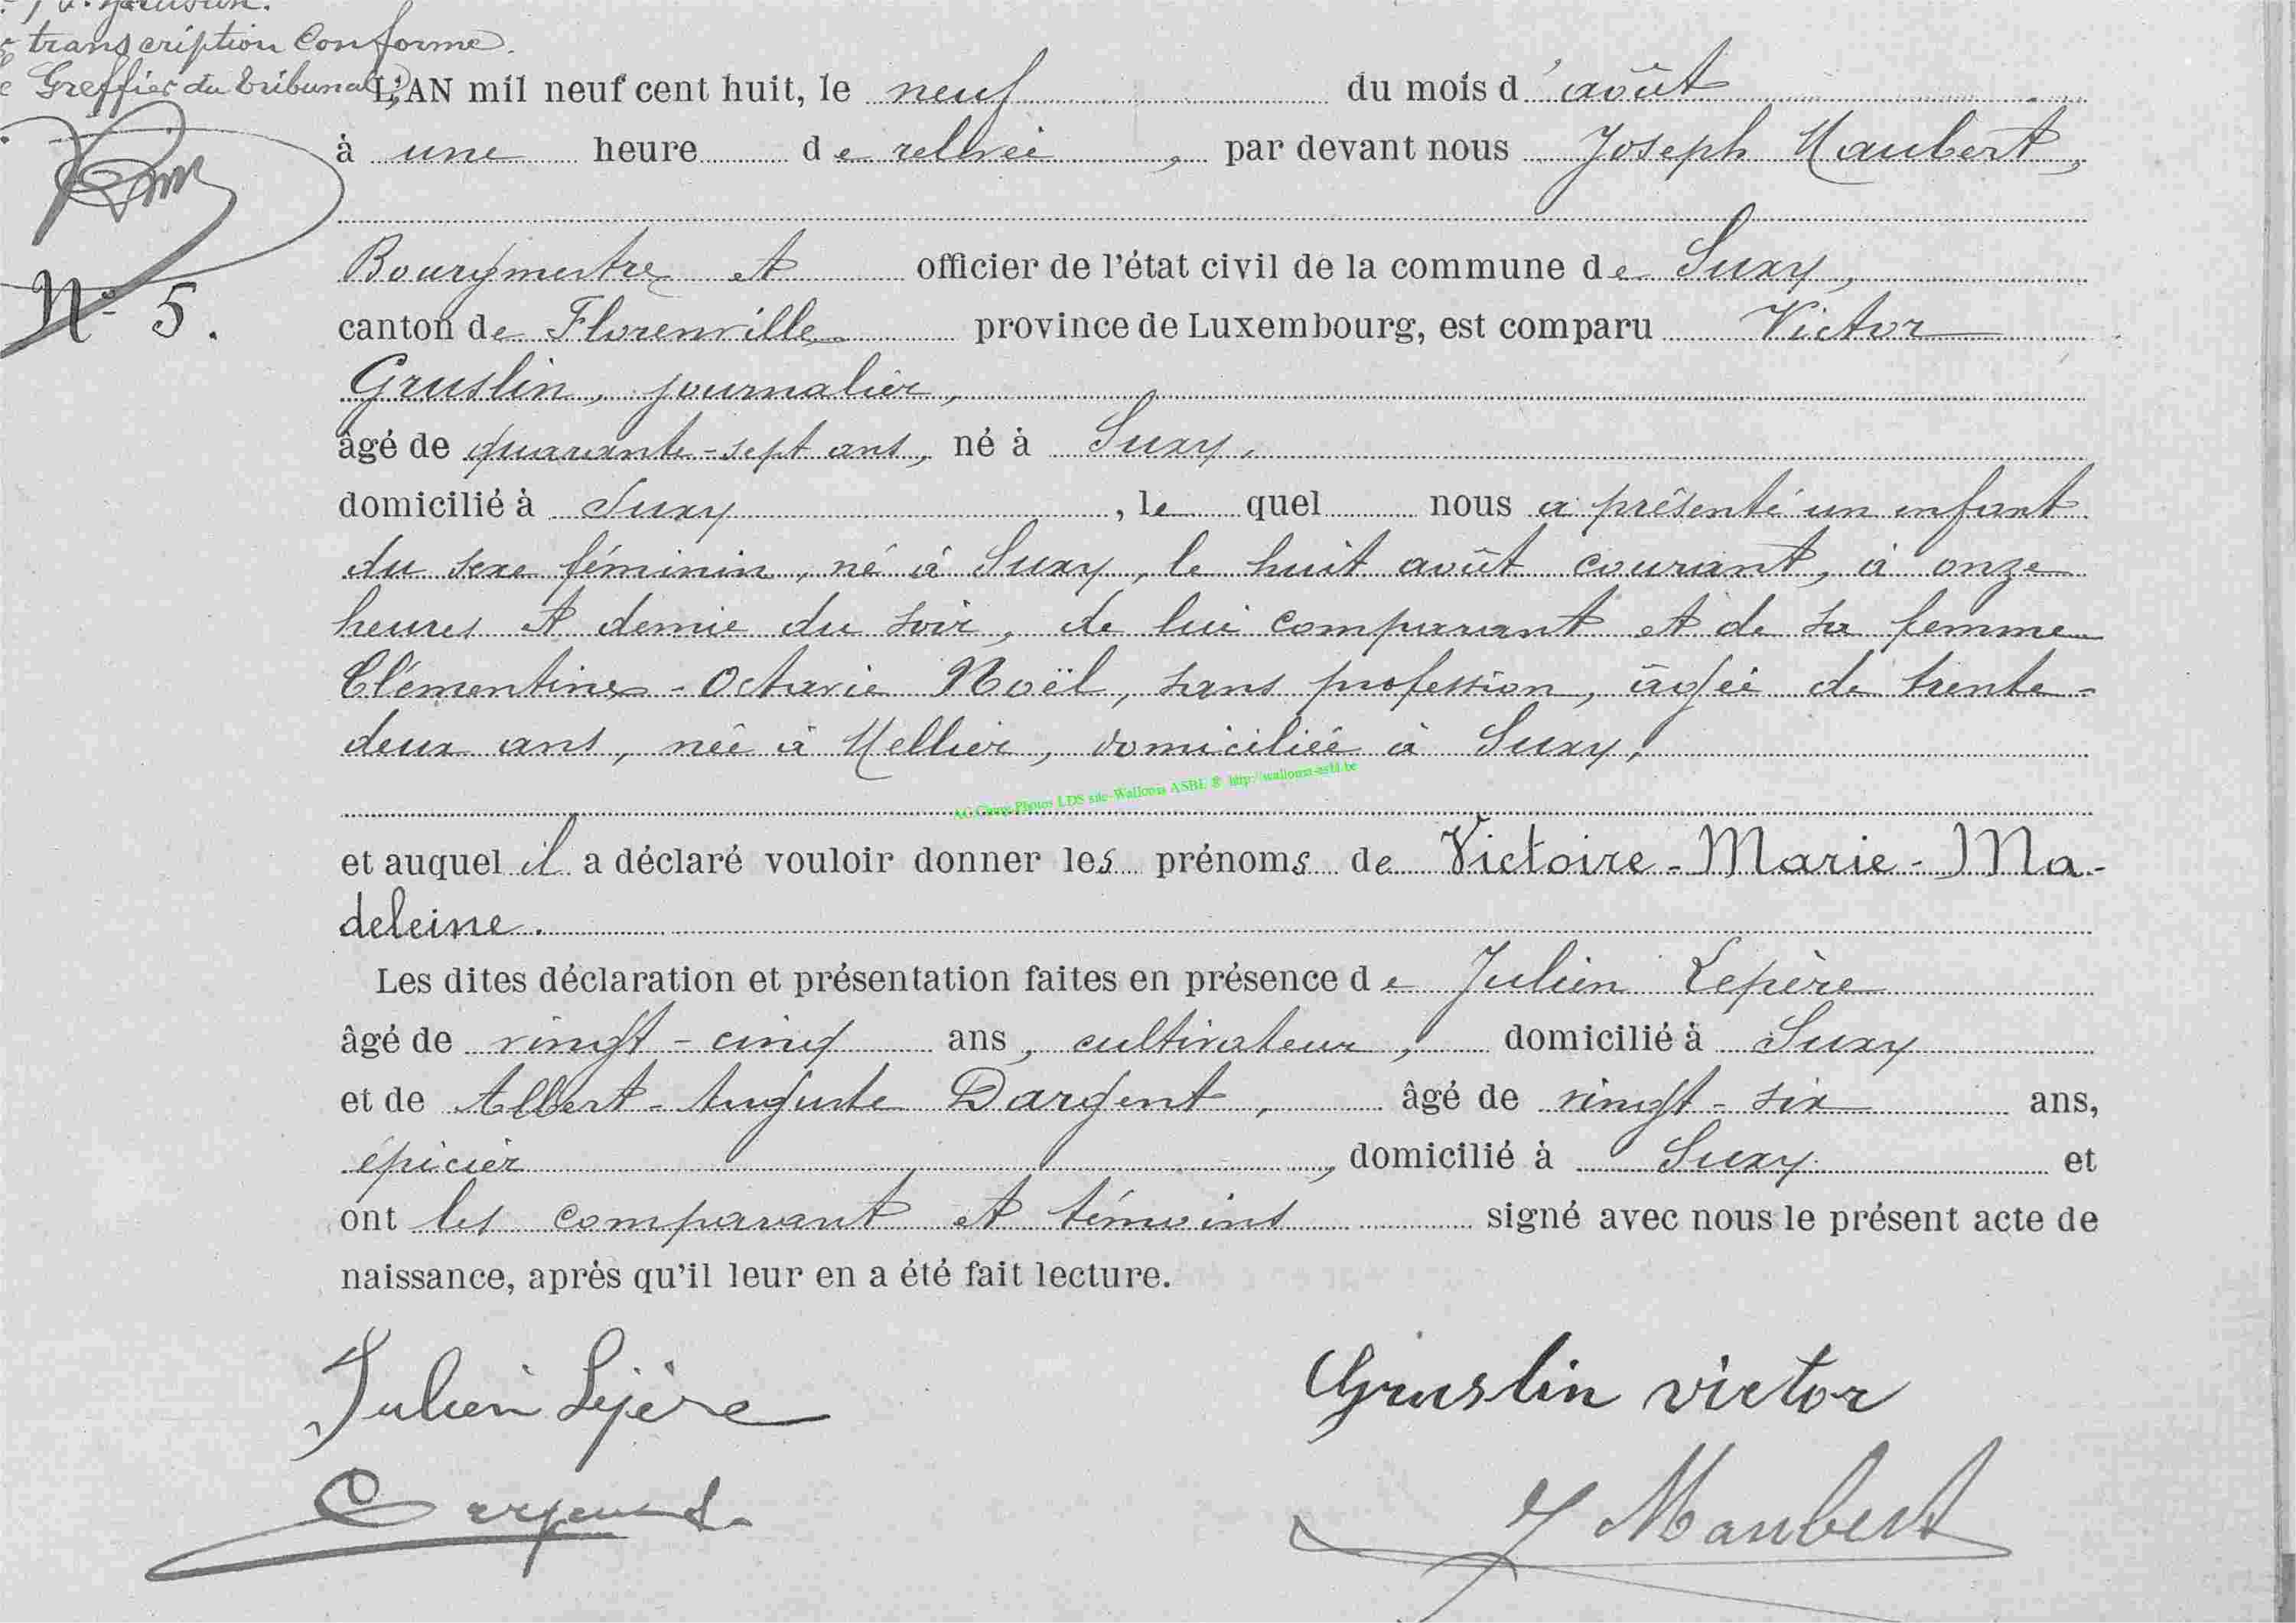 transcription Conforme.
Greffier du tribunal,
L'AN mil neuf cent huit, le neuf du mois d'août
à une heure de relevée, par devant nous Joseph Maubert,
Bourgmestre et officier de l'état civil de la commune de Suxy,
N° 5.
canton de Florenville province de Luxembourg, est comparu Victor
Gruslin, journalier,
âgé de quarante-sept ans, né à Suxy,
domicilié à Suxy, le quel nous a présenté un enfant
du sexe féminin, né à Suxy, le huit août courant, à onze
heures et demie du soir, de lui comparant et de sa femme
Clémentine-Octavie Noël, sans profession, âgée de trente-
deux ans, née à Mellier, domiciliée à Suxy,
AG Photos LDS site-Wallonia ASBL © http://wallonia-asbl.be
et auquel il a déclaré vouloir donner les prénoms de Victoire-Marie-Ma-
deleine.
Les dites déclaration et présentation faites en présence de Julien Lepère
âgé de vingt-cinq ans, cultivateur, domicilié à Suxy
et de Albert-Auguste Dargent, âgé de vingt-six ans,
épicier, domicilié à Suxy et
ont les comparant et témoins signé avec nous le présent acte de
naissance, après qu'il leur en a été fait lecture.
Julien Lepère
Gruslin victor
Dargent
J Maubert